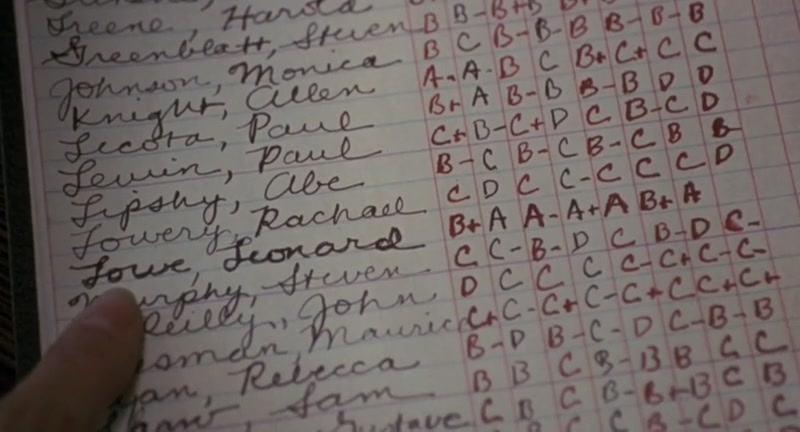 Greene, Harold B B- B+ B
Greenblatt, Steven B C B- B- B B- B- B
Johnson, Monica A- A- B C B+ C+ C C
Knight, Allen B+ A B- B B- B D D
Licota, Paul C+ B- C+ D C B- C D
Lewin, Paul B- C B- C B- C B B-
Lipshy, Abe C D C C- C C C D
Lowery, Rachael B+ A A- A+ A B+ A
Lowe, Leonard C C- B- D C B- D C-
Murphy, Steven D C C C C- C+ C- C-
Reilly, John C+ C- C+ C- C+ C C+ C+
Maurice B- D B- C- D C- B- B
Rebecca B B C B- B B C C
Sam C B C B- B+ B C B
Gustave C B- C D C